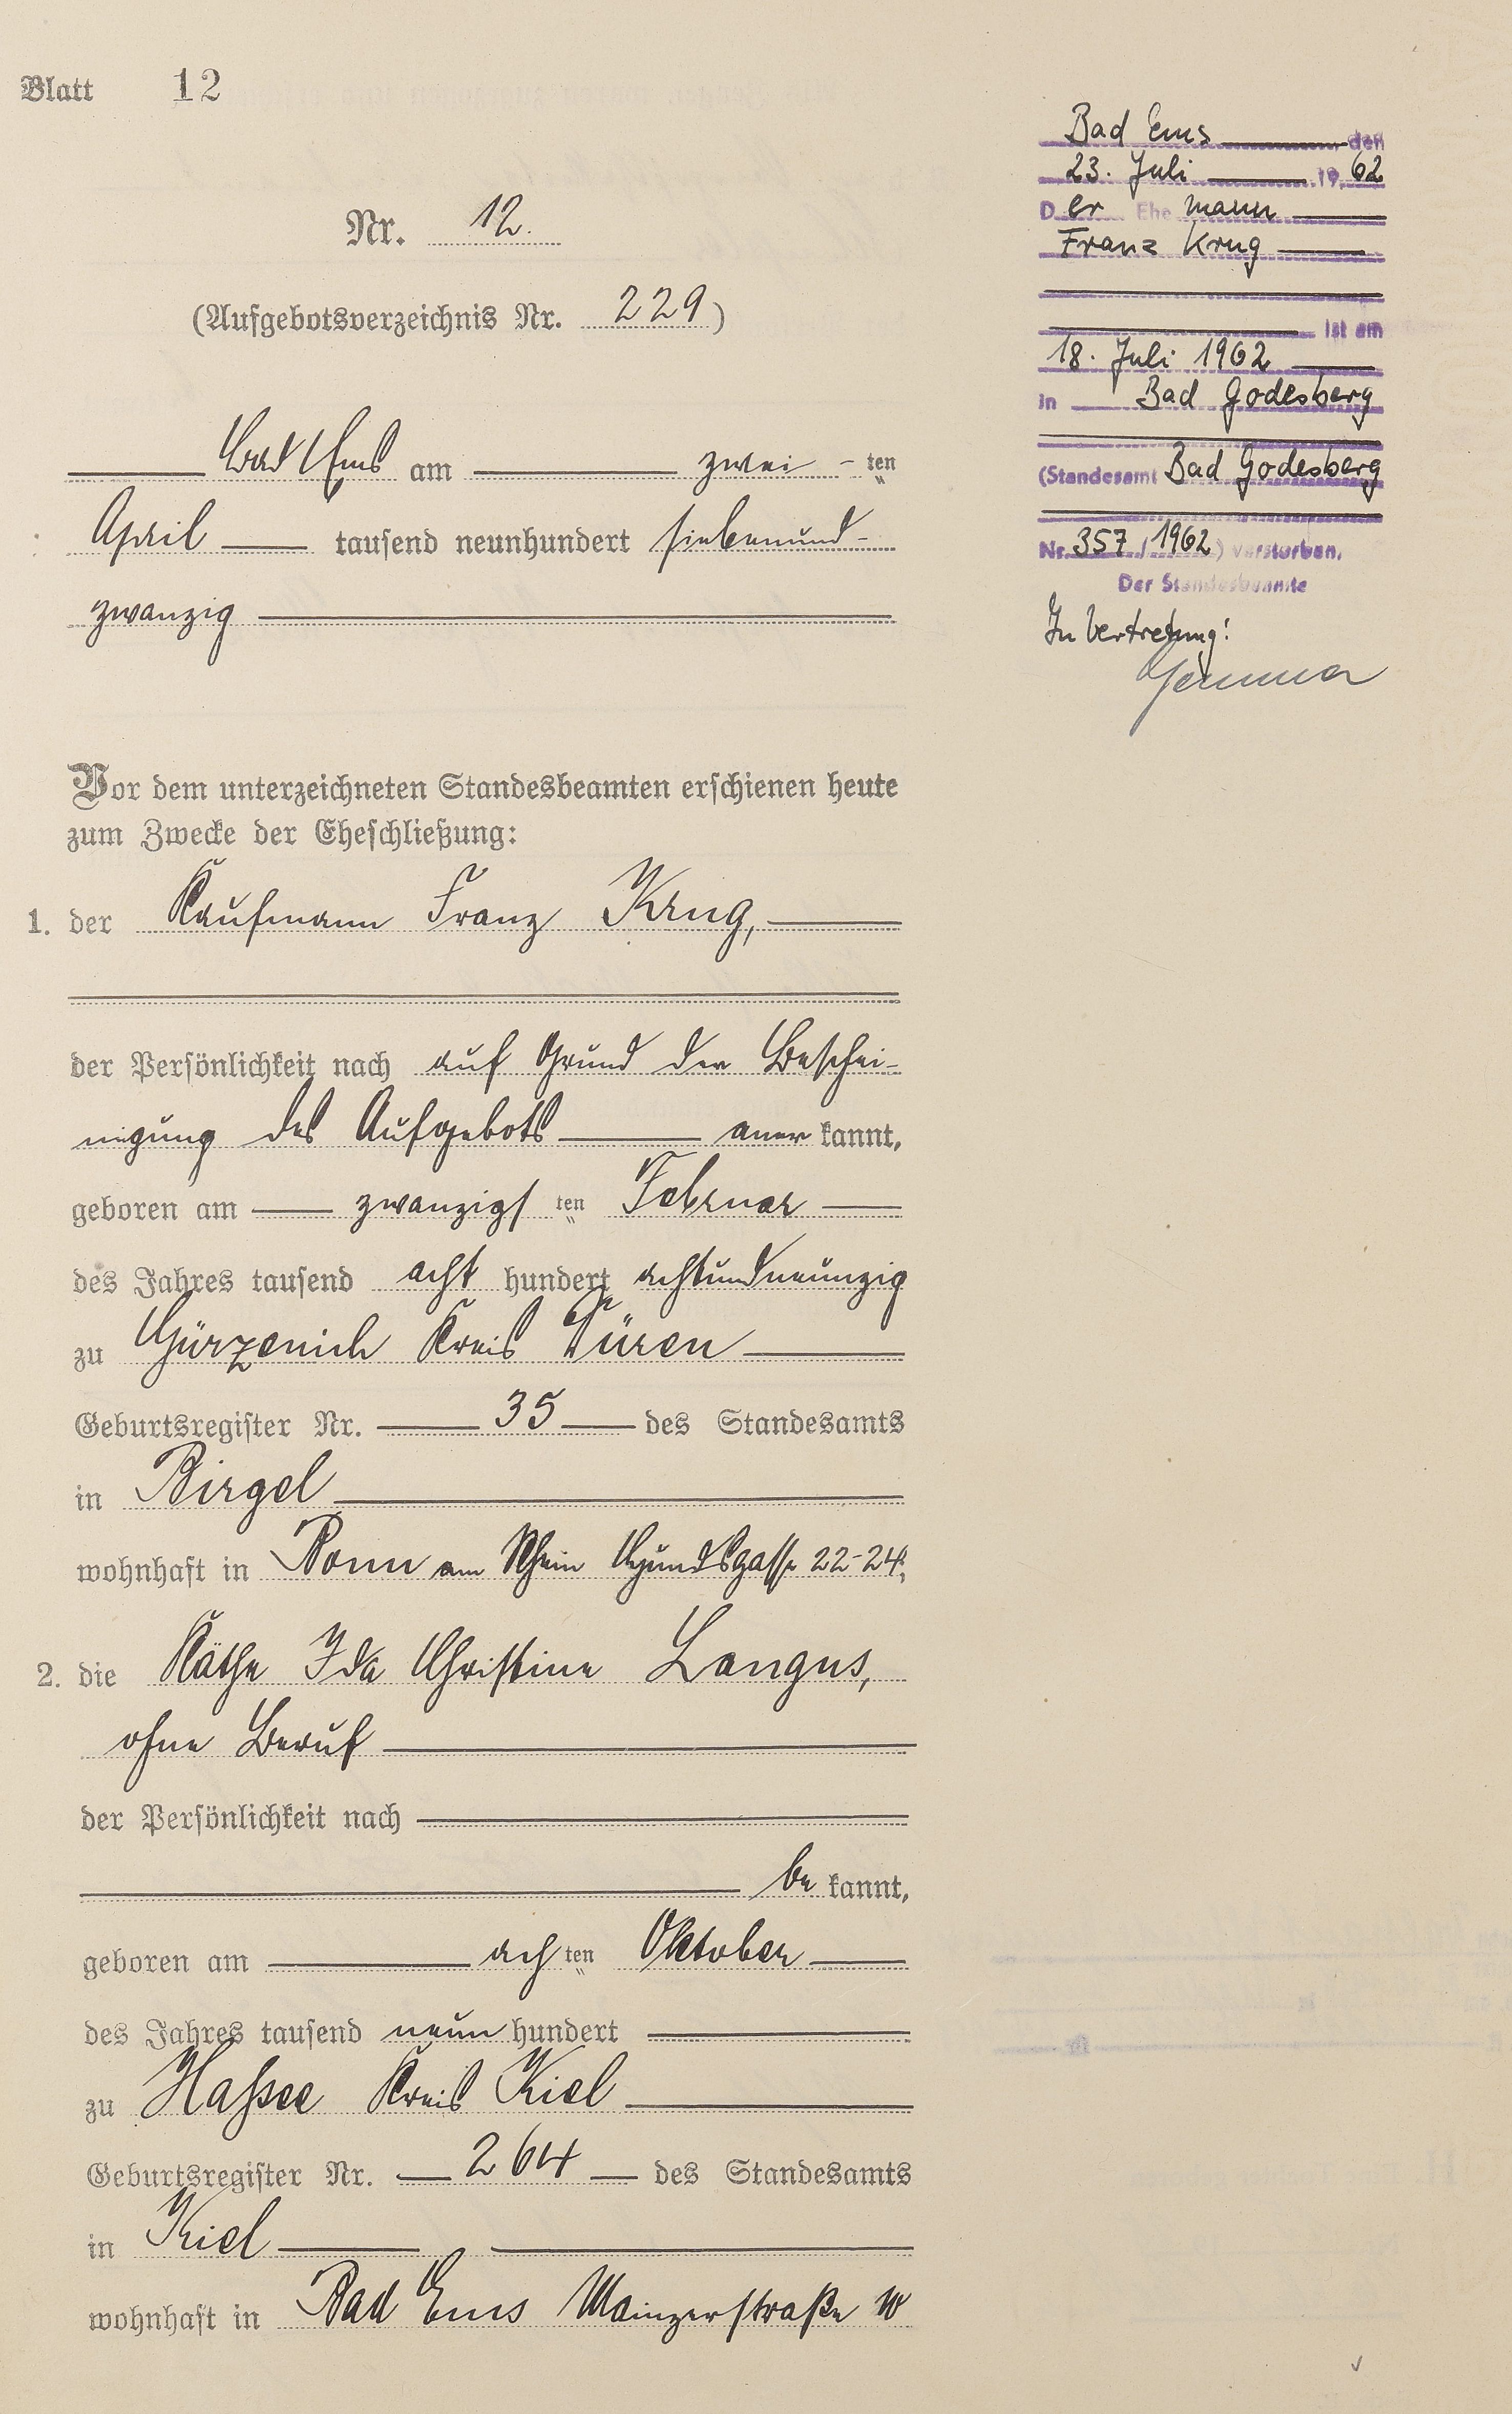 Blatt 12
Nr. 12.
(Aufgebotsverzeichnis Nr. 229)
Bad Ems am zwei-ten
April tausend neunhundert siebenund-
zwanzig
Vor dem unterzeichneten Standesbeamten erschienen heute
zum Zwecke der Eheschließung:
1. der Kaufmann Franz Krug,
der Persönlichkeit nach auf Grund der Beschei-
nigung des Aufgebots anerkannt,
geboren am zwanzigsten Februar
des Jahres tausend acht hundert achtundneunzig
zu Gürzenich Kreis Düren
Geburtsregister Nr. 35 des Standesamts
in Birgel
wohnhaft in Bonn am Rhein 22-24;
2. die Käthe Ida Christine Langus,
ohne Beruf
der Persönlichkeit nach
bekannt,
geboren am achten Oktober
des Jahres tausend neun hundert
zu Hassee Kreis Kiel
Geburtsregister Nr. 264 des Standesamts
in Kiel
wohnhaft in Bad Ems Mainzerstraße
Bad Ems den
23. Juli 1962
Der Ehemann
Franz Krug
ist am
18. Juli 1962
in Bad Godesberg
(Standesamt Bad Godesberg
Nr. 357/1962) verstorben.
Der Standesbeamte
In Vertretung!